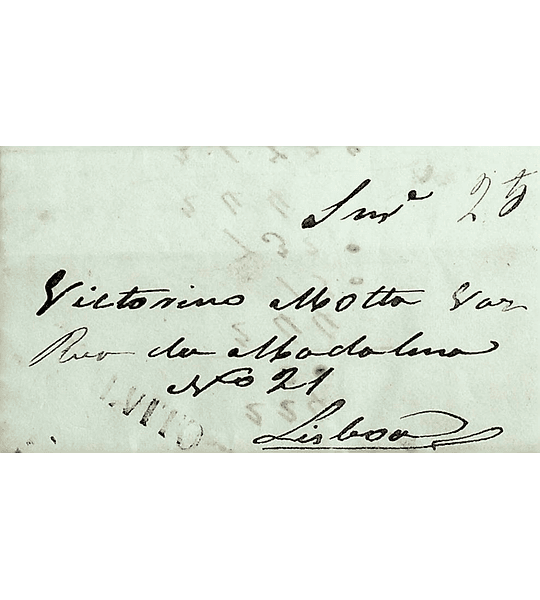 Snr 25
Victorino Motta Vaz
Rua da Madalena
No 21
Lisboa